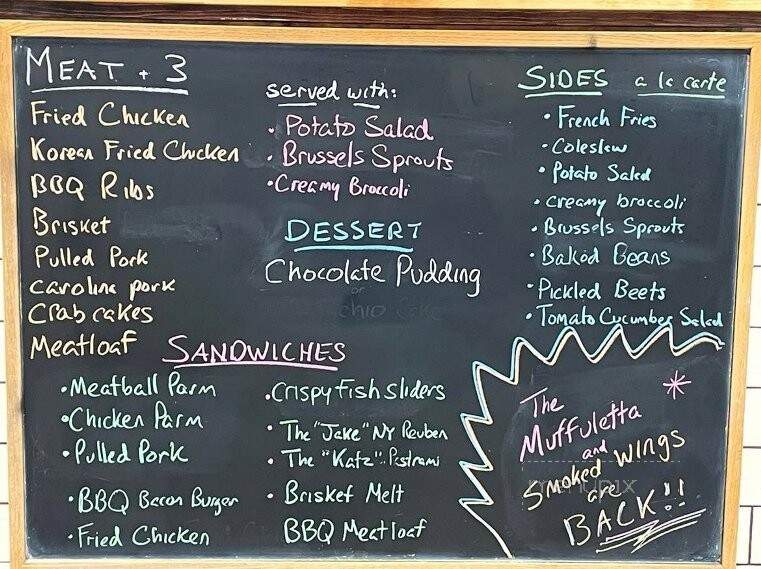 MEAT + 3
Fried Chicken
Korean Fried Chicken
BBQ Ribs
Brisket
Pulled Pork
Carolina pork
Crab cakes
Meatloaf
served with:
• Potato Salad
• Brussels Sprouts
• Creamy Broccoli
DESSERT
Chocolate Pudding
SIDES a la carte
• French Fries
• Coleslaw
• Potato Salad
• creamy broccoli
• Brussels Sprouts
• Baked Beans
• Pickled Beets
• Tomato Cucumber Salad
SANDWICHES
• Meatball Parm
• Chicken Parm
• Pulled Pork
• BBQ Bacon Burger
• Fried Chicken
• Crispy Fish sliders
• The "Jake" NY Reuben
• The "Katz" Pastrami
• Brisket Melt
BBQ Meatloaf
The
Muffuletta
and
Smoked Wings
are
BACK!!